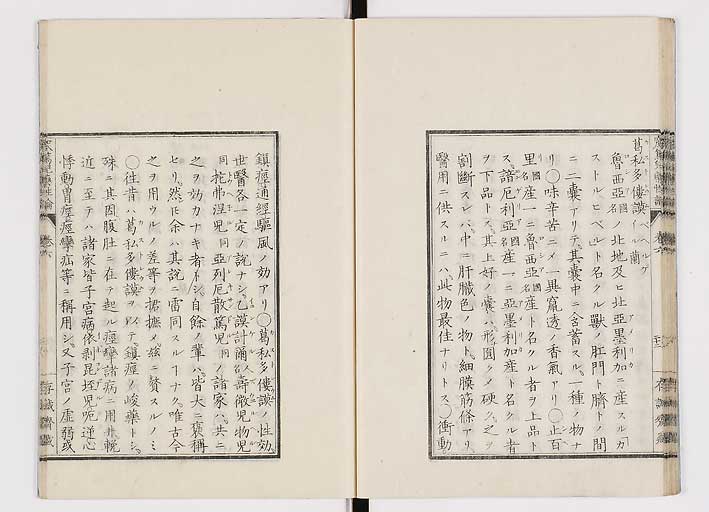 葛私多僂謨 ベーヘルゲイル蘭
魯西亞國名ノ北地及ヒ北亞墨利加ニ産スルカ
ストルヒーベルト名クル獸ノ肛門ト臍トノ間
ニ二囊アリテ、其囊中ニ含蓄スル、一種ノ物ナ
リ○味辛苦ニメ一異竄透ノ香氣アリ○止百
里國名産一ニ魯西亞國名産ト名クル者ヲ上品ト
ス、諳厄利亞國名産一ニ亞墨利加産ト名クル者
ヲ下品トス、其上好ノ囊ハ、形圓クメ硬ク、之ヲ
割斷スレハ、中ニ肝臟色ノ物ト、細膜筋條アリ、
醫用ニ供スルニハ、此物最佳ナリトス○衝動
鎮痙通經驅風ノ効アリ○葛私多僂謨ノ性効、
世醫各一定ノ說ナシ、乙謨計爾及ヒ壽徹児物児
同ト扢弗涅児同亞列厄散篤児同ノ諸家ハ、共ニ
之ヲ効力ナキ者トシ、自餘ノ輩ハ、皆大ニ褒稱
セリ、然ルニ余ハ其說ニ雷同スルナク、唯古今
之ヲ用ウルノ差等ヲ捃摭メ玆ニ贅スルノミ
○往昔ハ葛私多僂謨ヲ以テ鎮痙ノ峻藥トシ、
殊ニ其固腹肚ニ在テ起ル痙攣諸病ニ用ヰ、輓
近ニ至テハ諸家皆子宮病依剥昆垤児呃逆心
悸動胃痙痙攣疝等ニ稱用シ、又子宮ノ虚弱或
卷六